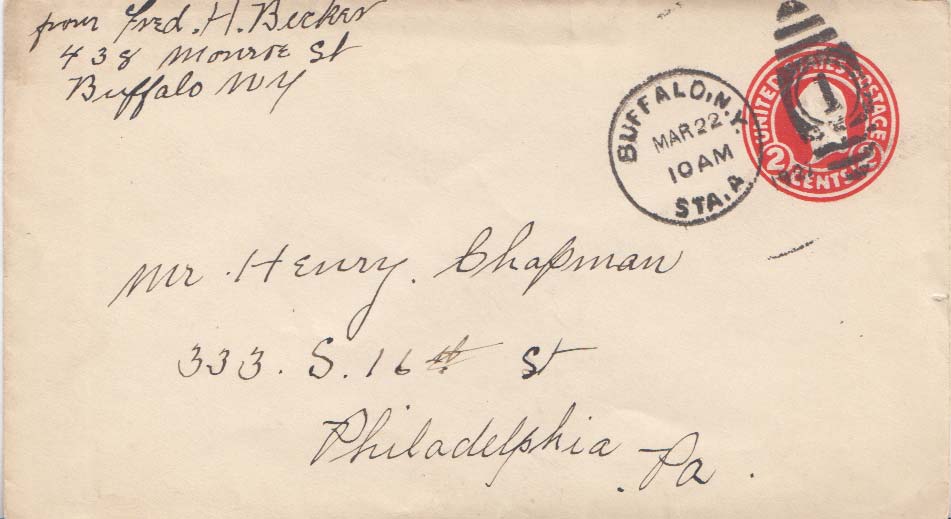 from Fred. H. Becker
438 Monroe St
Buffalo NY
BUFFALO, N.Y.
MAR 22
10 AM
STA. A
UNITED STATES POSTAGE
1
2
CENTS
Mr. Henry. Chapman
333. S. 16th St
Philadelphia
Pa.